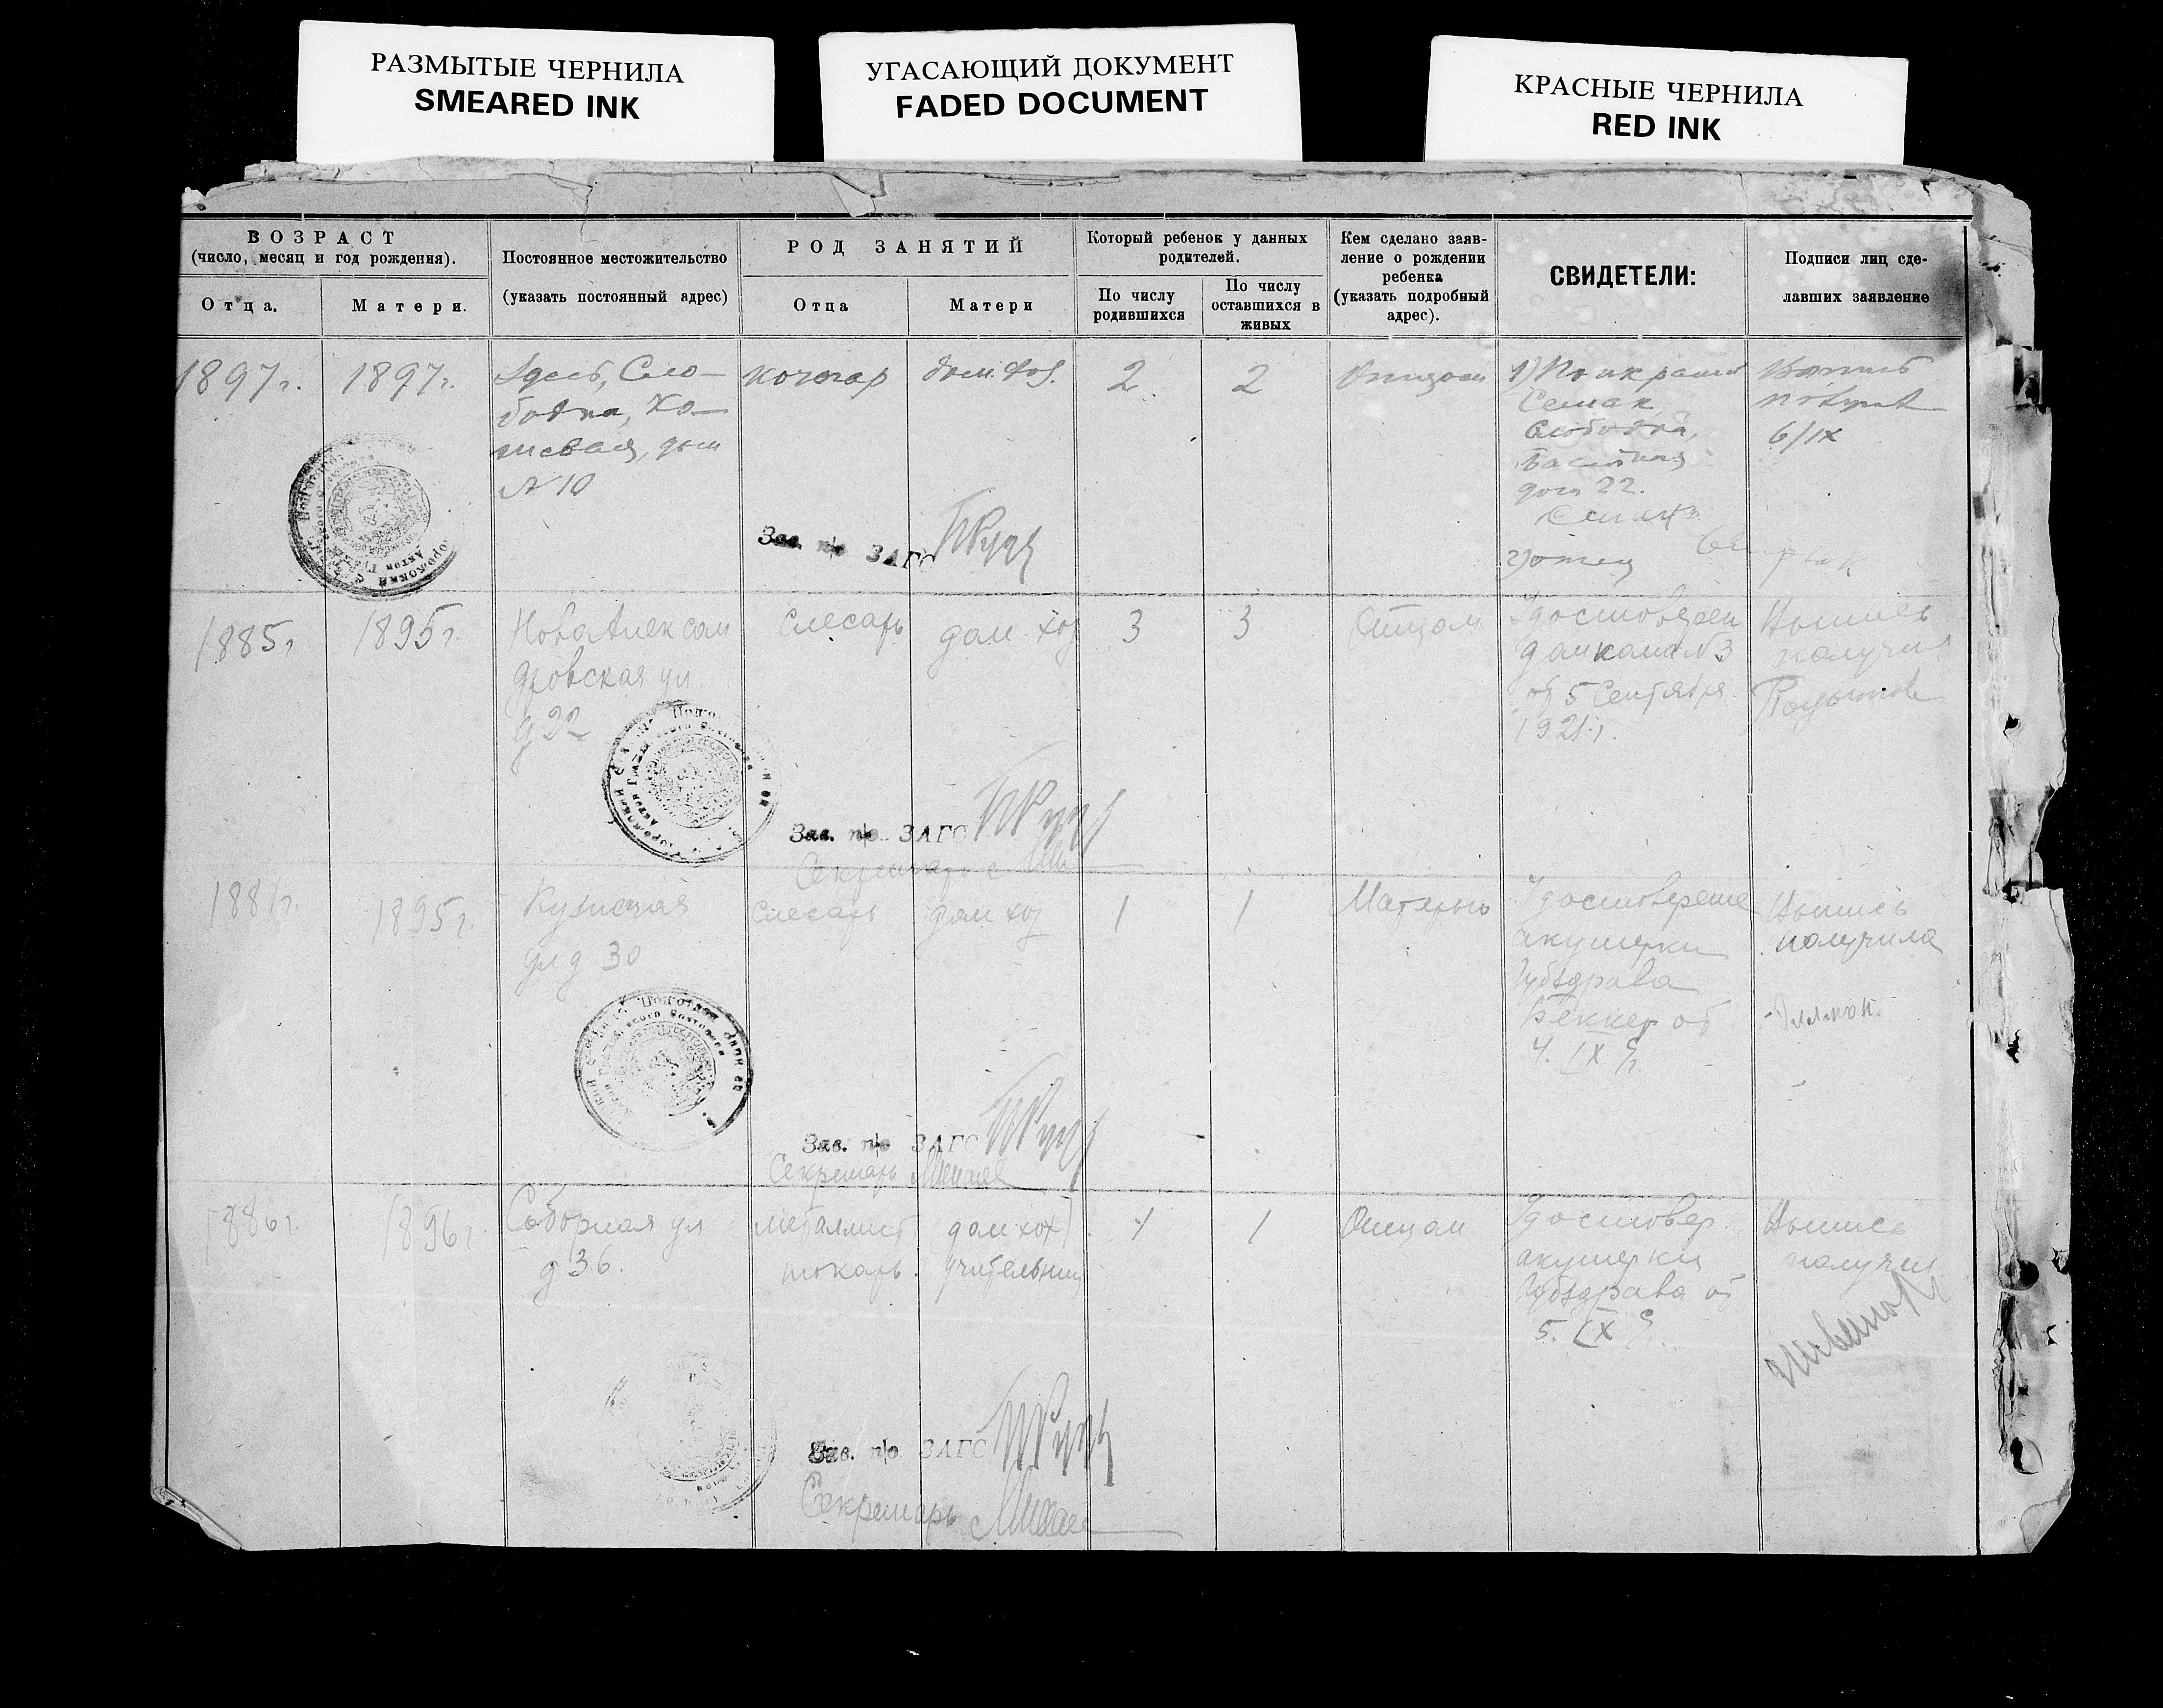 РАЗМЫТЫЕ ЧЕРНИЛА
SMEARED INK
УГАСАЮЩИЙ ДОКУМЕНТ
FADED DOCUMENT
КРАСНЫЕ ЧЕРНИЛА
RED INK
ВОЗРАСТ
(число, месяц и год рождения).
Отца.
Матери.
Постоянное местожительство
(указать постоянный адрес)
РОД ЗАНЯТИЙ
Отца
Матери
Который ребенок у данных
родителей.
По числу
родившихся
По числу
оставшихся в
живых
Кем сделано заяв-
ление о рождении
ребенка
(указать подробный
адрес).
СВИДЕТЕЛИ:
Подписи лиц сде-
лавших заявление
1897г.
1897г.
Здесь, Сло-
бодка,
дом
№ 10
кочегар
дом. хоз.
2
2
Отцом
1)
Семак
Слободка,
дом 22.
2) отец
6/IX
Зав. п/о ЗАГС
1885г
1895г.
НовоАлексан
дровская ул
д 22
Слесарь
дом. хоз
3
3
Отцом
Удостоверен
домкома №3
от 5 Сентября
1921г.
Выпись
получил
Зав. п/о ЗАГС
Секретарь
1881г.
1895г.
Кузнечная
ул д 30
Слесарь
дом хоз
1
1
Матерью
Удостоверение
акушерки
Губздрава
Беккер от
4. IX
Выпись
получила
Зав. п/о ЗАГС
Секретарь
1886г.
1896г.
Соборная ул
д 36.
металлист
токарь.
дом хоз
учительниц
1
1
Отцом
Удостовер.
акушерки
Губздрава от
5. IX
Выпись
получил
Зав. п/о ЗАГС
Секретарь